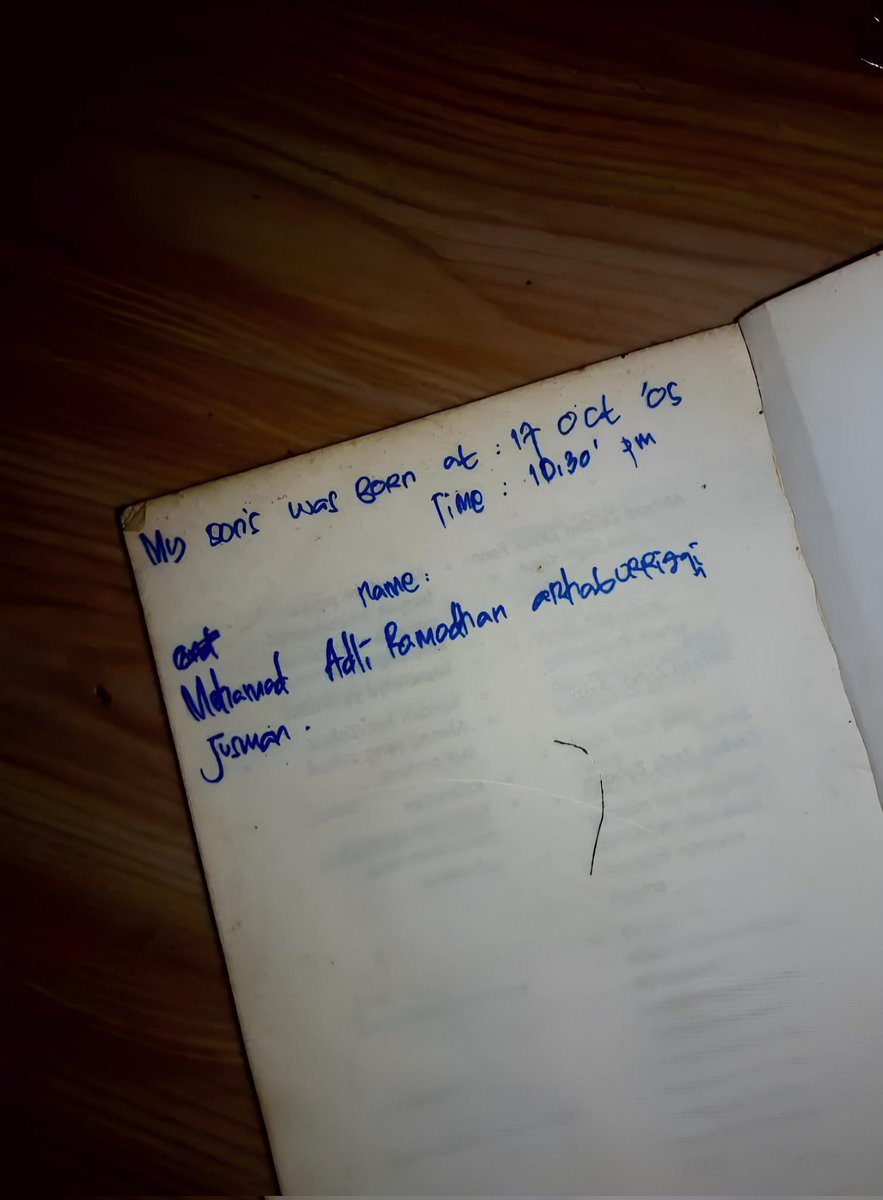 My son's was Born at : 17 oct '05
Time : 10.30' pm
name :
Mohamad Adli Ramadhan
Jusman .